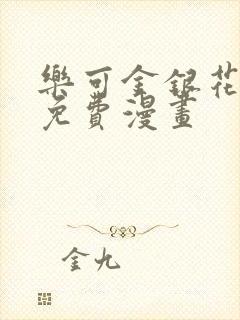 樂可金銀花
免費漫畫
金九